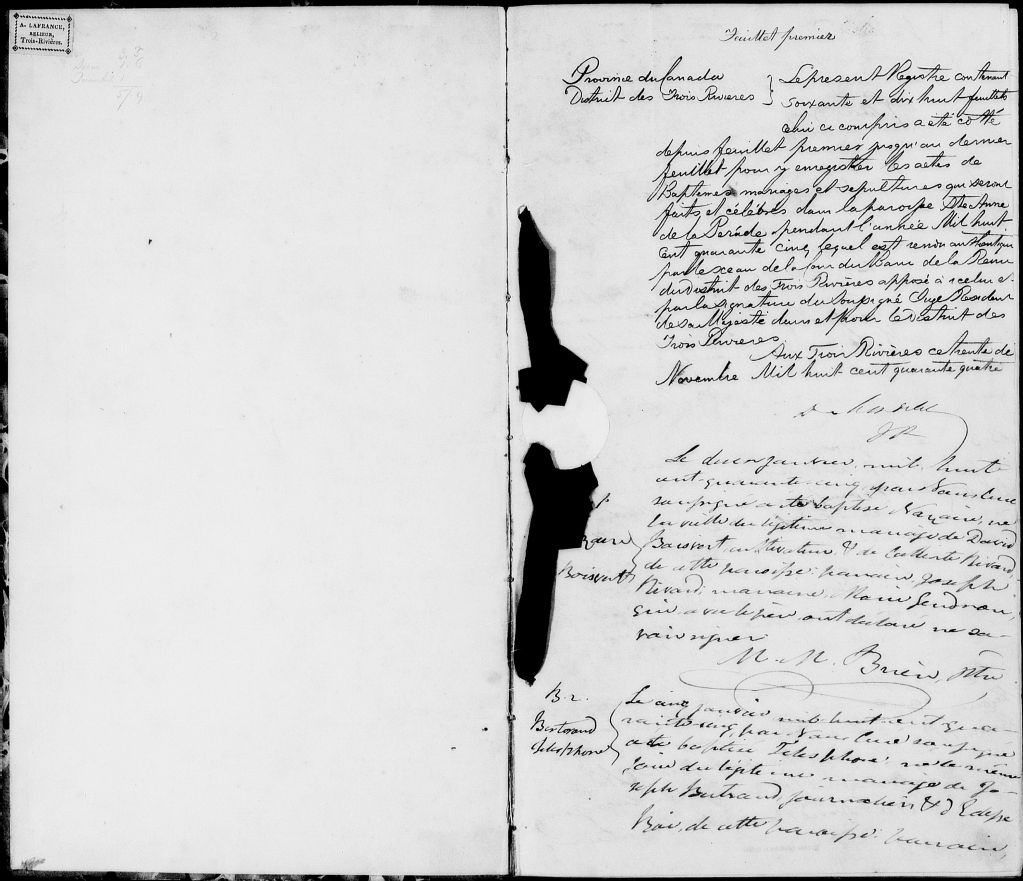 A. LAFRANCE,
RELIEUR,
Trois-Rivières.
Feuillet premier
Province du Canada
District des Trois Rivieres
Le present Registre contenant
soixante et dix huit feuillets
celui ci compris a été cotté
depuis feuillet premier jusqu'au dernier
feuillet pour y enregistrer les actes de
Baptemes mariages et sepultures qui seront
faits et célébrés dans la paroisse Ste Anne
de la Perade pendant l'année Mil huit
Cent quarante cinq, lequel est rendu authentique
par le sceau de la Cour du Banc de la Reine
du District des Trois Rivières apposé à icelui et
par la signature du soussigné Juge Resident
de sa Majesté dans et pour le District des
Trois Rivieres
Aux Trois Rivières ce trente de
Novembre Mil huit cent quarante quatre
Le deux janvier, mil huit
cent quarante-cinq, par Nous Curé
soussigné a été baptisé Nazaire, né
la veille du légitime mariage de David
Boisvert, cultivateur, & de Calixte Rivard,
de cette paroisse: parrain, Joseph
Rivard, marraine, Marie Gendron,
qui avec le père ont déclaré ne sa-
voir signer.
Boisvert
M. M. Brien, Ptre
B. 2.
Bertrand
Télesphore
Le cinq janvier mil huit cent qua-
rante cinq, par Nous Curé soussigné
a été baptisé Télesphore, né le même
jour du légitime mariage de Jo-
seph Bertrand, journalier, &
de cette paroisse: parrain,